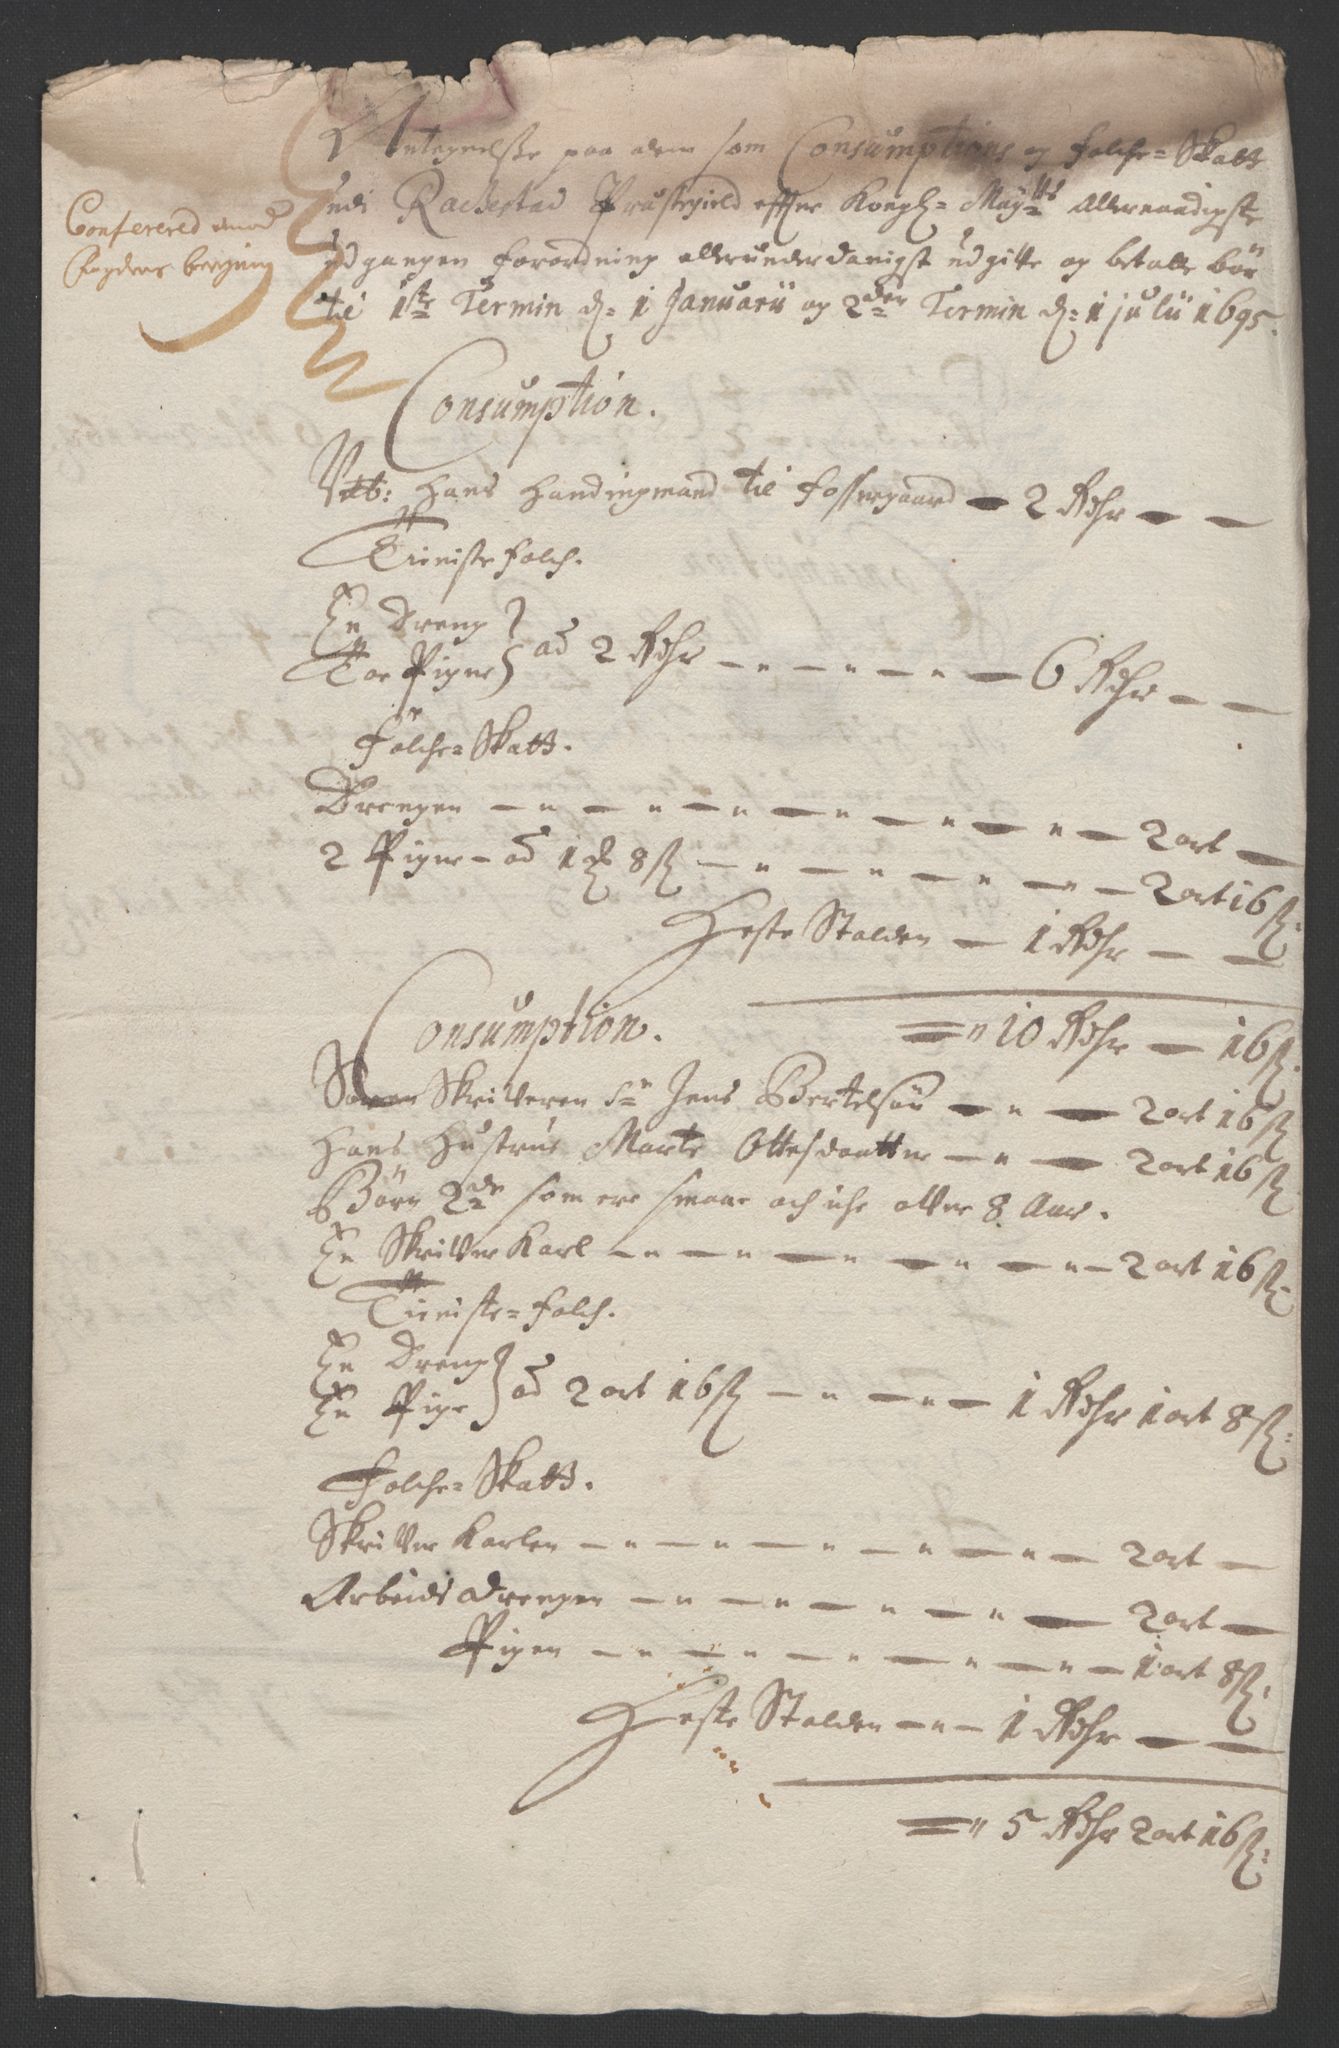 Antegnelse paa dem som Consumptions og Folche-Skatt
udi Rachestad Præstegield effter Kongl: Maytts Allernaadigste
udgangen forordning allerunderdanigst udgitte og betalle bør
til 1ste Termin d: 1 Januarii og 2den Termin d: 1 julii 1695.
Confererod imod
Fogdens beregning
Consumption.
Hans til Fossergaard 2 Rdhr
Tieniste folch.
En Dreng
Toe Piger ad 2 Rdhr 6 Rdhr
Folche-Skatt.
Drengen 2 ort
2 Piger ad 1 ℔ 8 ß 2 ort 16 ß
Heste Stalden 1 Rdhr
10 Rdhr 16 ß
Consumption.
Soren Skrifveren Sr Jens Bertelsøn 2 ort 16 ß
Hans Hustrue Marte Ottesdaatter 2 ort 16 ß
Børn 2de som ere smaae och iche ofver 8 Aar.
En Skrifver Karl 2 ort 16 ß
Tieniste-Folch.
En Dreng
En Pige ad 2 ort 16 ß 1 Rdhr 1 ort 8 ß
Folche-Skatt.
Skrifver Karlen 2 ort
Arbeids drengen 2 ort
Pigen 1 ort 8 ß
Heste Stalden 1 Rdhr
5 Rdhr 2 ort 16 ß